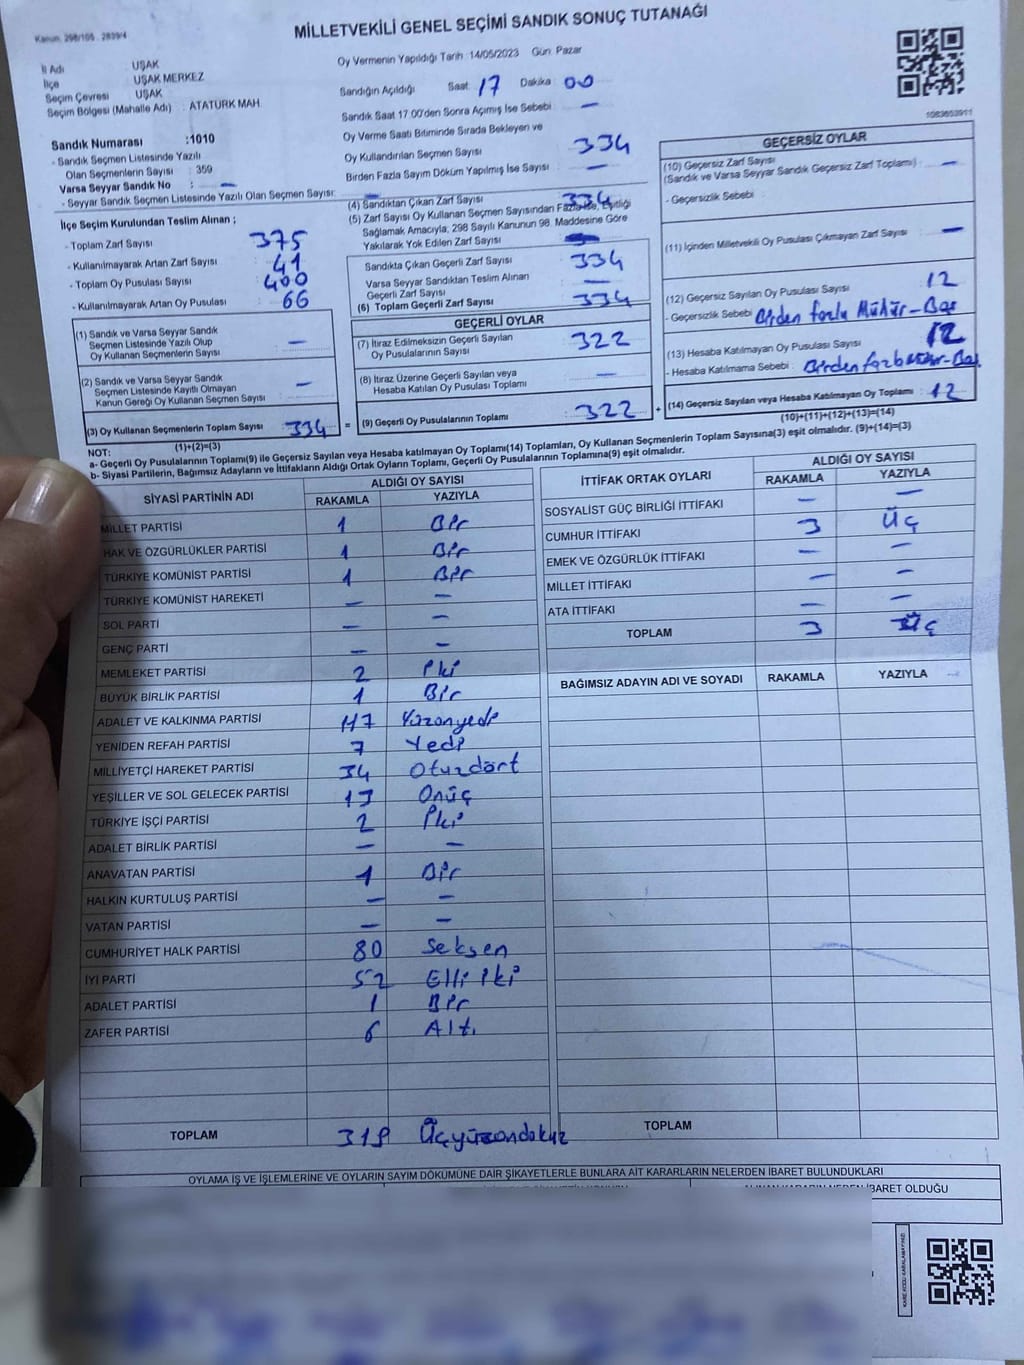 Kanun: 298/105 2839/4
MİLLETVEKİLİ GENEL SEÇİMİ SANDIK SONUÇ TUTANAĞI
1083653911
İl Adı UŞAK
İlçe UŞAK MERKEZ
Seçim Çevresi UŞAK
Seçim Bölgesi (Mahalle Adı) : ATATÜRK MAH.
Oy Vermenin Yapıldığı Tarih 14/05/2023 Gün: Pazar
Sandığın Açıldığı Saat 17 Dakika 00
Sandık Saat 17.00'den Sonra Açımış İse Sebebi : –
Oy Verme Saati Bitiminde Sırada Bekleyen ve
Oy Kullandırılan Seçmen Sayısı 334
Birden Fazla Sayım Döküm Yapılmış İse Sayısı –
Sandık Numarası :1010
- Sandık Seçmen Listesinde Yazılı
Olan Seçmenlerin Sayısı : 359
Varsa Seyyar Sandık No : –
- Seyyar Sandık Seçmen Listesinde Yazılı Olan Seçmen Sayısı: –
İlçe Seçim Kurulundan Teslim Alınan ;
- Toplam Zarf Sayısı 375
- Kullanılmayarak Artan Zarf Sayısı : 41
- Toplam Oy Pusulası Sayısı 400
- Kullanılmayarak Artan Oy Pusulası : 66
(1) Sandık ve Varsa Seyyar Sandık
Seçmen Listesinde Yazılı Olup
Oy Kullanan Seçmenlerin Sayısı –
(2) Sandık ve Varsa Seyyar Sandık
Seçmen Listesinde Kayıtlı Olmayan
Kanun Gereği Oy Kullanan Seçmen Sayısı –
(3) Oy Kullanan Seçmenlerin Toplam Sayısı : 334 =
(1)+(2)=(3)
(4) Sandıktan Çıkan Zarf Sayısı 334
(5) Zarf Sayısı Oy Kullanan Seçmen Sayısından Fazla ise, Eşitliği
Sağlamak Amacıyla; 298 Sayılı Kanunun 98. Maddesine Göre
Yakılarak Yok Edilen Zarf Sayısı
Sandıkta Çıkan Geçerli Zarf Sayısı 334
Varsa Seyyar Sandıktan Teslim Alınan
Geçerli Zarf Sayısı –
(6) Toplam Geçerli Zarf Sayısı : 334
GEÇERLİ OYLAR
(7) İtiraz Edilmeksizin Geçerli Sayılan
Oy Pusulalarının Sayısı 322
(8) İtiraz Üzerine Geçerli Sayılan veya
Hesaba Katılan Oy Pusulası Toplamı –
(9) Geçerli Oy Pusulalarının Toplamı : 322 +
GEÇERSİZ OYLAR
(10) Geçersiz Zarf Sayısı
(Sandık ve Varsa Seyyar Sandık Geçersiz Zarf Toplamı) : –
- Geçersizlik Sebebi :
(11) İçinden Milletvekili Oy Pusulası Çıkmayan Zarf Sayısı –
(12) Geçersiz Sayılan Oy Pusulası Sayısı 12
- Geçersizlik Sebebi : Birden fazla Mühür-Bas
(13) Hesaba Katılmayan Oy Pusulası Sayısı 12
- Hesaba Katılmama Sebebi : Birden
(14) Geçersiz Sayılan veya Hesaba Katılmayan Oy Toplamı : 12
(10)+(11)+(12)+(13)=(14)
NOT:
a- Geçerli Oy Pusulalarının Toplamı(9) ile Geçersiz Sayılan veya Hesaba katılmayan Oy Toplamı(14) Toplamları, Oy Kullanan Seçmenlerin Toplam Sayısına(3) eşit olmalıdır. (9)+(14)=(3)
b- Siyasi Partilerin, Bağımsız Adayların ve İttifakların Aldığı Ortak Oyların Toplamı, Geçerli Oy Pusulalarının Toplamına(9) eşit olmalıdır.
SİYASİ PARTİNİN ADI ALDIĞI OY SAYISI
RAKAMLA YAZIYLA
MİLLET PARTİSİ 1 Bir
HAK VE ÖZGÜRLÜKLER PARTİSİ 1 Bir
TÜRKİYE KOMÜNİST PARTİSİ 1 Bir
TÜRKİYE KOMÜNİST HAREKETİ – –
SOL PARTİ – –
GENÇ PARTİ – –
MEMLEKET PARTİSİ 2 İki
BÜYÜK BİRLİK PARTİSİ 1 Bir
ADALET VE KALKINMA PARTİSİ 117 Yüzonyedi
YENİDEN REFAH PARTİSİ 7 Yedi
MİLLİYETÇİ HAREKET PARTİSİ 34 Otuzdört
YEŞİLLER VE SOL GELECEK PARTİSİ 13 Onüç
TÜRKİYE İŞÇİ PARTİSİ 2 İki
ADALET BİRLİK PARTİSİ – –
ANAVATAN PARTİSİ 1 Bir
HALKIN KURTULUŞ PARTİSİ – –
VATAN PARTİSİ – –
CUMHURİYET HALK PARTİSİ 80 Seksen
İYİ PARTİ 52 Elli iki
ADALET PARTİSİ 1 Bir
ZAFER PARTİSİ 6 Altı
TOPLAM 319 Üçyüzondokuz
İTTİFAK ORTAK OYLARI ALDIĞI OY SAYISI
RAKAMLA YAZIYLA
SOSYALİST GÜÇ BİRLİĞİ İTTİFAKI – –
CUMHUR İTTİFAKI 3 Üç
EMEK VE ÖZGÜRLÜK İTTİFAKI – –
MİLLET İTTİFAKI – –
ATA İTTİFAKI – –
TOPLAM 3 Üç
BAĞIMSIZ ADAYIN ADI VE SOYADI RAKAMLA YAZIYLA
TOPLAM
OYLAMA İŞ VE İŞLEMLERİNE VE OYLARIN SAYIM DÖKÜMÜNE DAİR ŞİKAYETLERLE BUNLARA AİT KARARLARIN NELERDEN İBARET BULUNDUKLARI
ALINAN KARARIN NEDEN İBARET OLDUĞU
KARE KODU KARALAMAYINIZ!